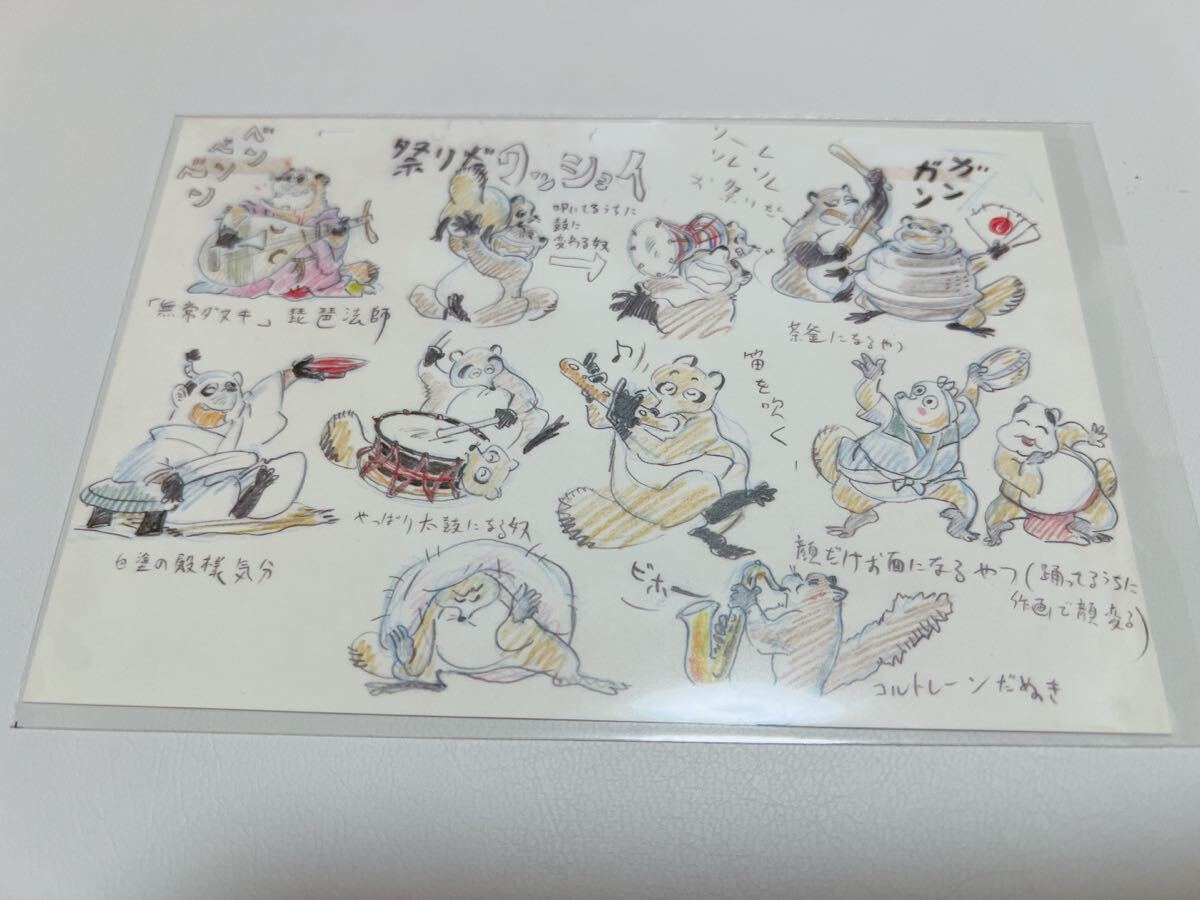 ベン
ベン
ベン
祭りだワッショイ
お祭りだ
ガン
ガン
叩いてるうちに
鼓に
変わる奴
「無常ダヌキ」琵琶法師
茶釜になるやつ
笛を吹く
白塗の殿様気分
やっぱり太鼓になる奴
顔だけお面になるやつ(踊ってるうちに
作画で顔変る)
ピホー
コルトレーンだぬき